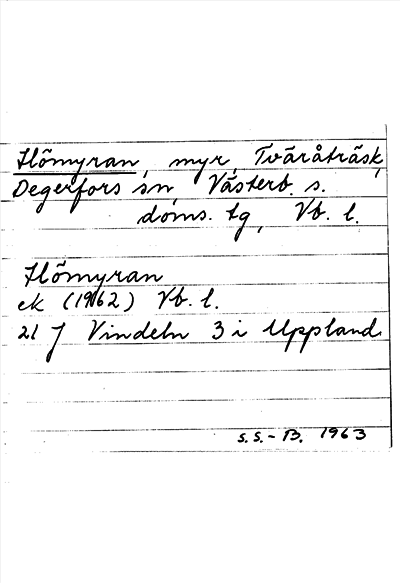 Hömyran, myr, Tväråträsk,
Degerfors sn, Västerb. s.
doms. tg, Vb. l.
Hömyran
ek (1962) Vb. l.
21 J Vindeln 3 i Uppland.
S.S.-B. 1963